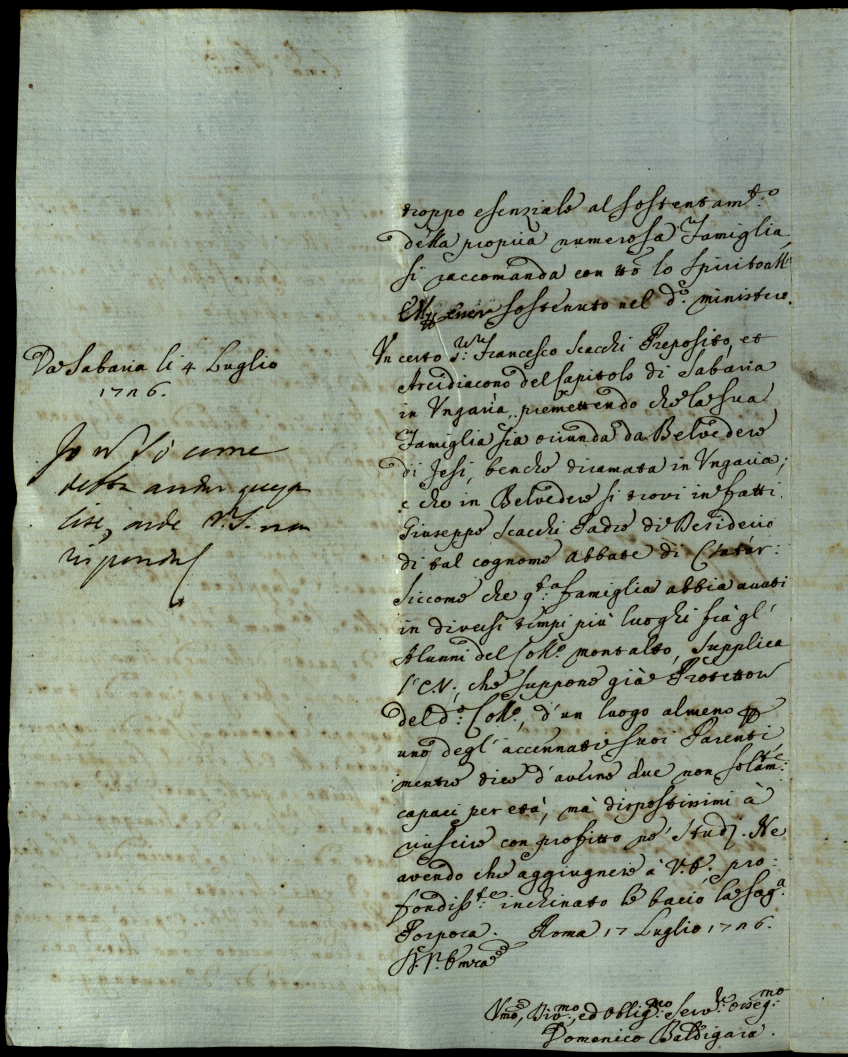 troppo esenziale al sostentam.to
della propria numerosa Famiglia
si raccomanda con tto lo Spirito all'
esser sostenuto nel d.o ministero.
Un certo S.r Francesco Scacchi Preposito, et
Arcidiacono del Capitolo di Sabaria
in Vngaria, premettendo che la sua
Famiglia sia oriunda da Belvedere
di Jesi, benche diramata in Vngaria;
e che in Belvedere si trovi infatti
Giuseppe Scacchi Padre di Desiderio
di tal cognome Abbate di Csatár:
Siccome che q.ta famiglia abbia avuti
in diversi tempi più luoghi frà gl'
Alunni del Coll.o Montalto, supplica
l'E.V., che suppone già Protettore
del d.o Coll.o, d'un luogo almeno p
uno degl' accennati suoi Parenti
mentre dice d'averne due non solam.te
capaci per età, mà dispostissimi à
riuscire con profitto ne' Studj. Ne
avendo che aggiugnere à V.E. pro:
fondiss.te inchinato le bacio la sag.a
Porpora. Roma 17 Luglio 1726.
Di V. Emza
Vmo, Divmo, ed obligmo Serv.re osseqmo
Domenico Baldigara.
Da Sabaria li 4 Luglio
1726.
Io n sò come
debba andar questa
V.S. non
risponda